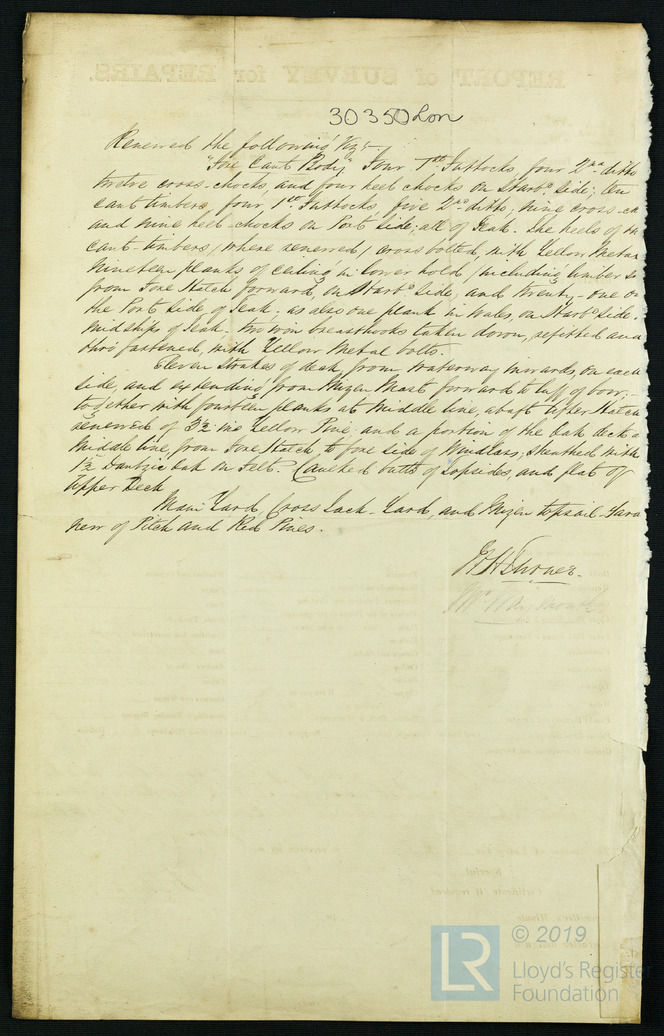 REPORT of SURVEY for REPAIRS.
30350 Lon
Renewed the following Vizt
"Fore Cant Body" Four 1st Futtocks, four 2nd ditto
twelve cross-chocks, and four heel chocks on Starbd Side; ten
cant timbers, four 1st Futtocks, five 2nd ditto; nine cross-ch
and nine heel-chocks on Port side; all of Teak. The heels of th
cant-timbers (where renewed) cross bolted, with Yellow Metal
Nineteen planks of ceiling in lower hold, including limber
from Fore Hatch forward, on Starbd Side; and Twenty-one on
the Port Side of Teak; as also one plank in Wales, on Starbd Side
Midships of Teak. Two iron breasthooks taken down, refitted and
thro' fastened, with Yellow Metal bolts.
Eleven Strakes of deck, from Waterway inwards, on each
side, and extending from Mizen Mast forward to luff of bow;
together with fourteen planks at Middle line, abaft Upper Hatch
renewed of 3½ ins Yellow Pine, and a portion of the oak deck a
Middle line, from Fore Hatch to fore side of Windlass, sheathed with
1½ Dantzic Oak on Felt. Caulked butts of Topsides, and flat of
Upper Deck
Main Yard, Cross Jack-Yard, and Mizen topsail-Yard
new of Pitch and Red Pines.
W H Turner.
Waymouth
© 2019
LR
Lloyd's Register
Foundation